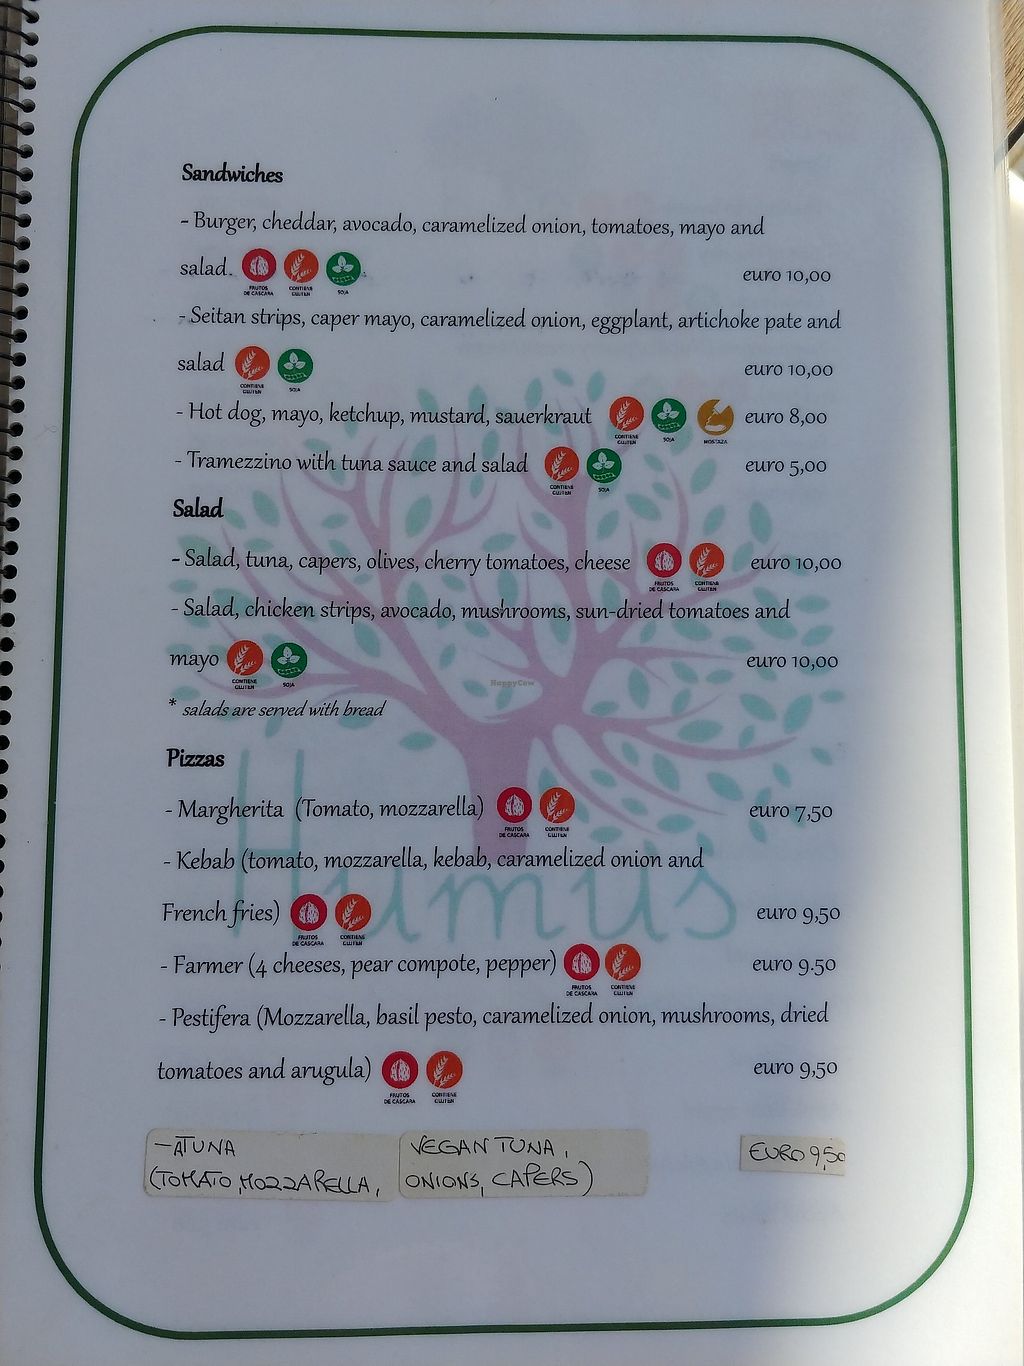 Sandwiches
- Burger, cheddar, avocado, caramelized onion, tomatoes, mayo and
salad. FRUTOS DE CASCARA CONTIENE GLUTEN SOJA euro 10,00
- Seitan strips, caper mayo, caramelized onion, eggplant, artichoke pate and
salad CONTIENE GLUTEN SOJA euro 10,00
- Hot dog, mayo, ketchup, mustard, sauerkraut CONTIENE GLUTEN SOJA MOSTAZA euro 8,00
- Tramezzino with tuna sauce and salad CONTIENE GLUTEN SOJA euro 5,00
Salad
- Salad, tuna, capers, olives, cherry tomatoes, cheese FRUTOS DE CASCARA CONTIENE GLUTEN euro 10,00
- Salad, chicken strips, avocado, mushrooms, sun-dried tomatoes and
mayo CONTIENE GLUTEN SOJA euro 10,00
HappyCow
* salads are served with bread
Pizzas
- Margherita (Tomato, mozzarella) FRUTOS DE CASCARA CONTIENE GLUTEN euro 7,50
- Kebab (tomato, mozzarella, kebab, caramelized onion and
Humus
French fries) FRUTOS DE CASCARA CONTIENE GLUTEN euro 9,50
- Farmer (4 cheeses, pear compote, pepper) FRUTOS DE CASCARA CONTIENE GLUTEN euro 9.50
- Pestifera (Mozzarella, basil pesto, caramelized onion, mushrooms, dried
tomatoes and arugula) FRUTOS DE CASCARA CONTIENE GLUTEN euro 9,50
- ATUNA VEGAN TUNA, EURO 9,50
(TOMATO, MOZZARELLA, ONIONS, CAPERS)